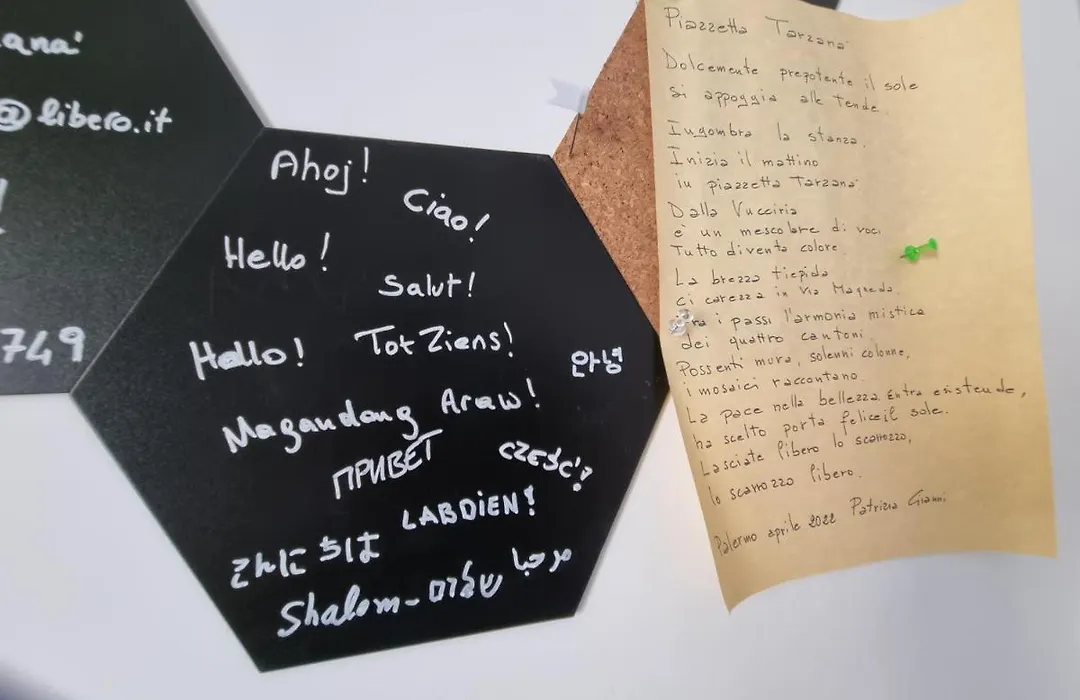 ana'
@libero.it
749
Ahoj!
Ciao!
Hello!
Salut!
Hello!
Tot Ziens!
안녕
Magandang Araw!
ПРИВЕТ
CZEŚĆ!
LABDIEN!
こんにちは
مرحبا
Shalom - שלום
Piazzetta Tarzanà
Dolcemente prepotente il sole
si appoggia alle tende.
Ingombra la stanza.
Inizia il mattino
in piazzetta Tarzanà.
Dalla Vucciria
è un mescolare di voci
Tutto diventa colore.
La brezza tiepida
ci carezza in Via Maqueda.
i passi l'armonia mistica
dei quattro cantoni.
Possenti mura, solenni colonne,
i mosaici raccontano.
La pace nella bellezza. Entra esistende,
ha scelto porta felice il sole.
Lasciate libero lo scarrozzo,
lo scarrozzo libero.
Palermo aprile 2022 Patrizia Gianni